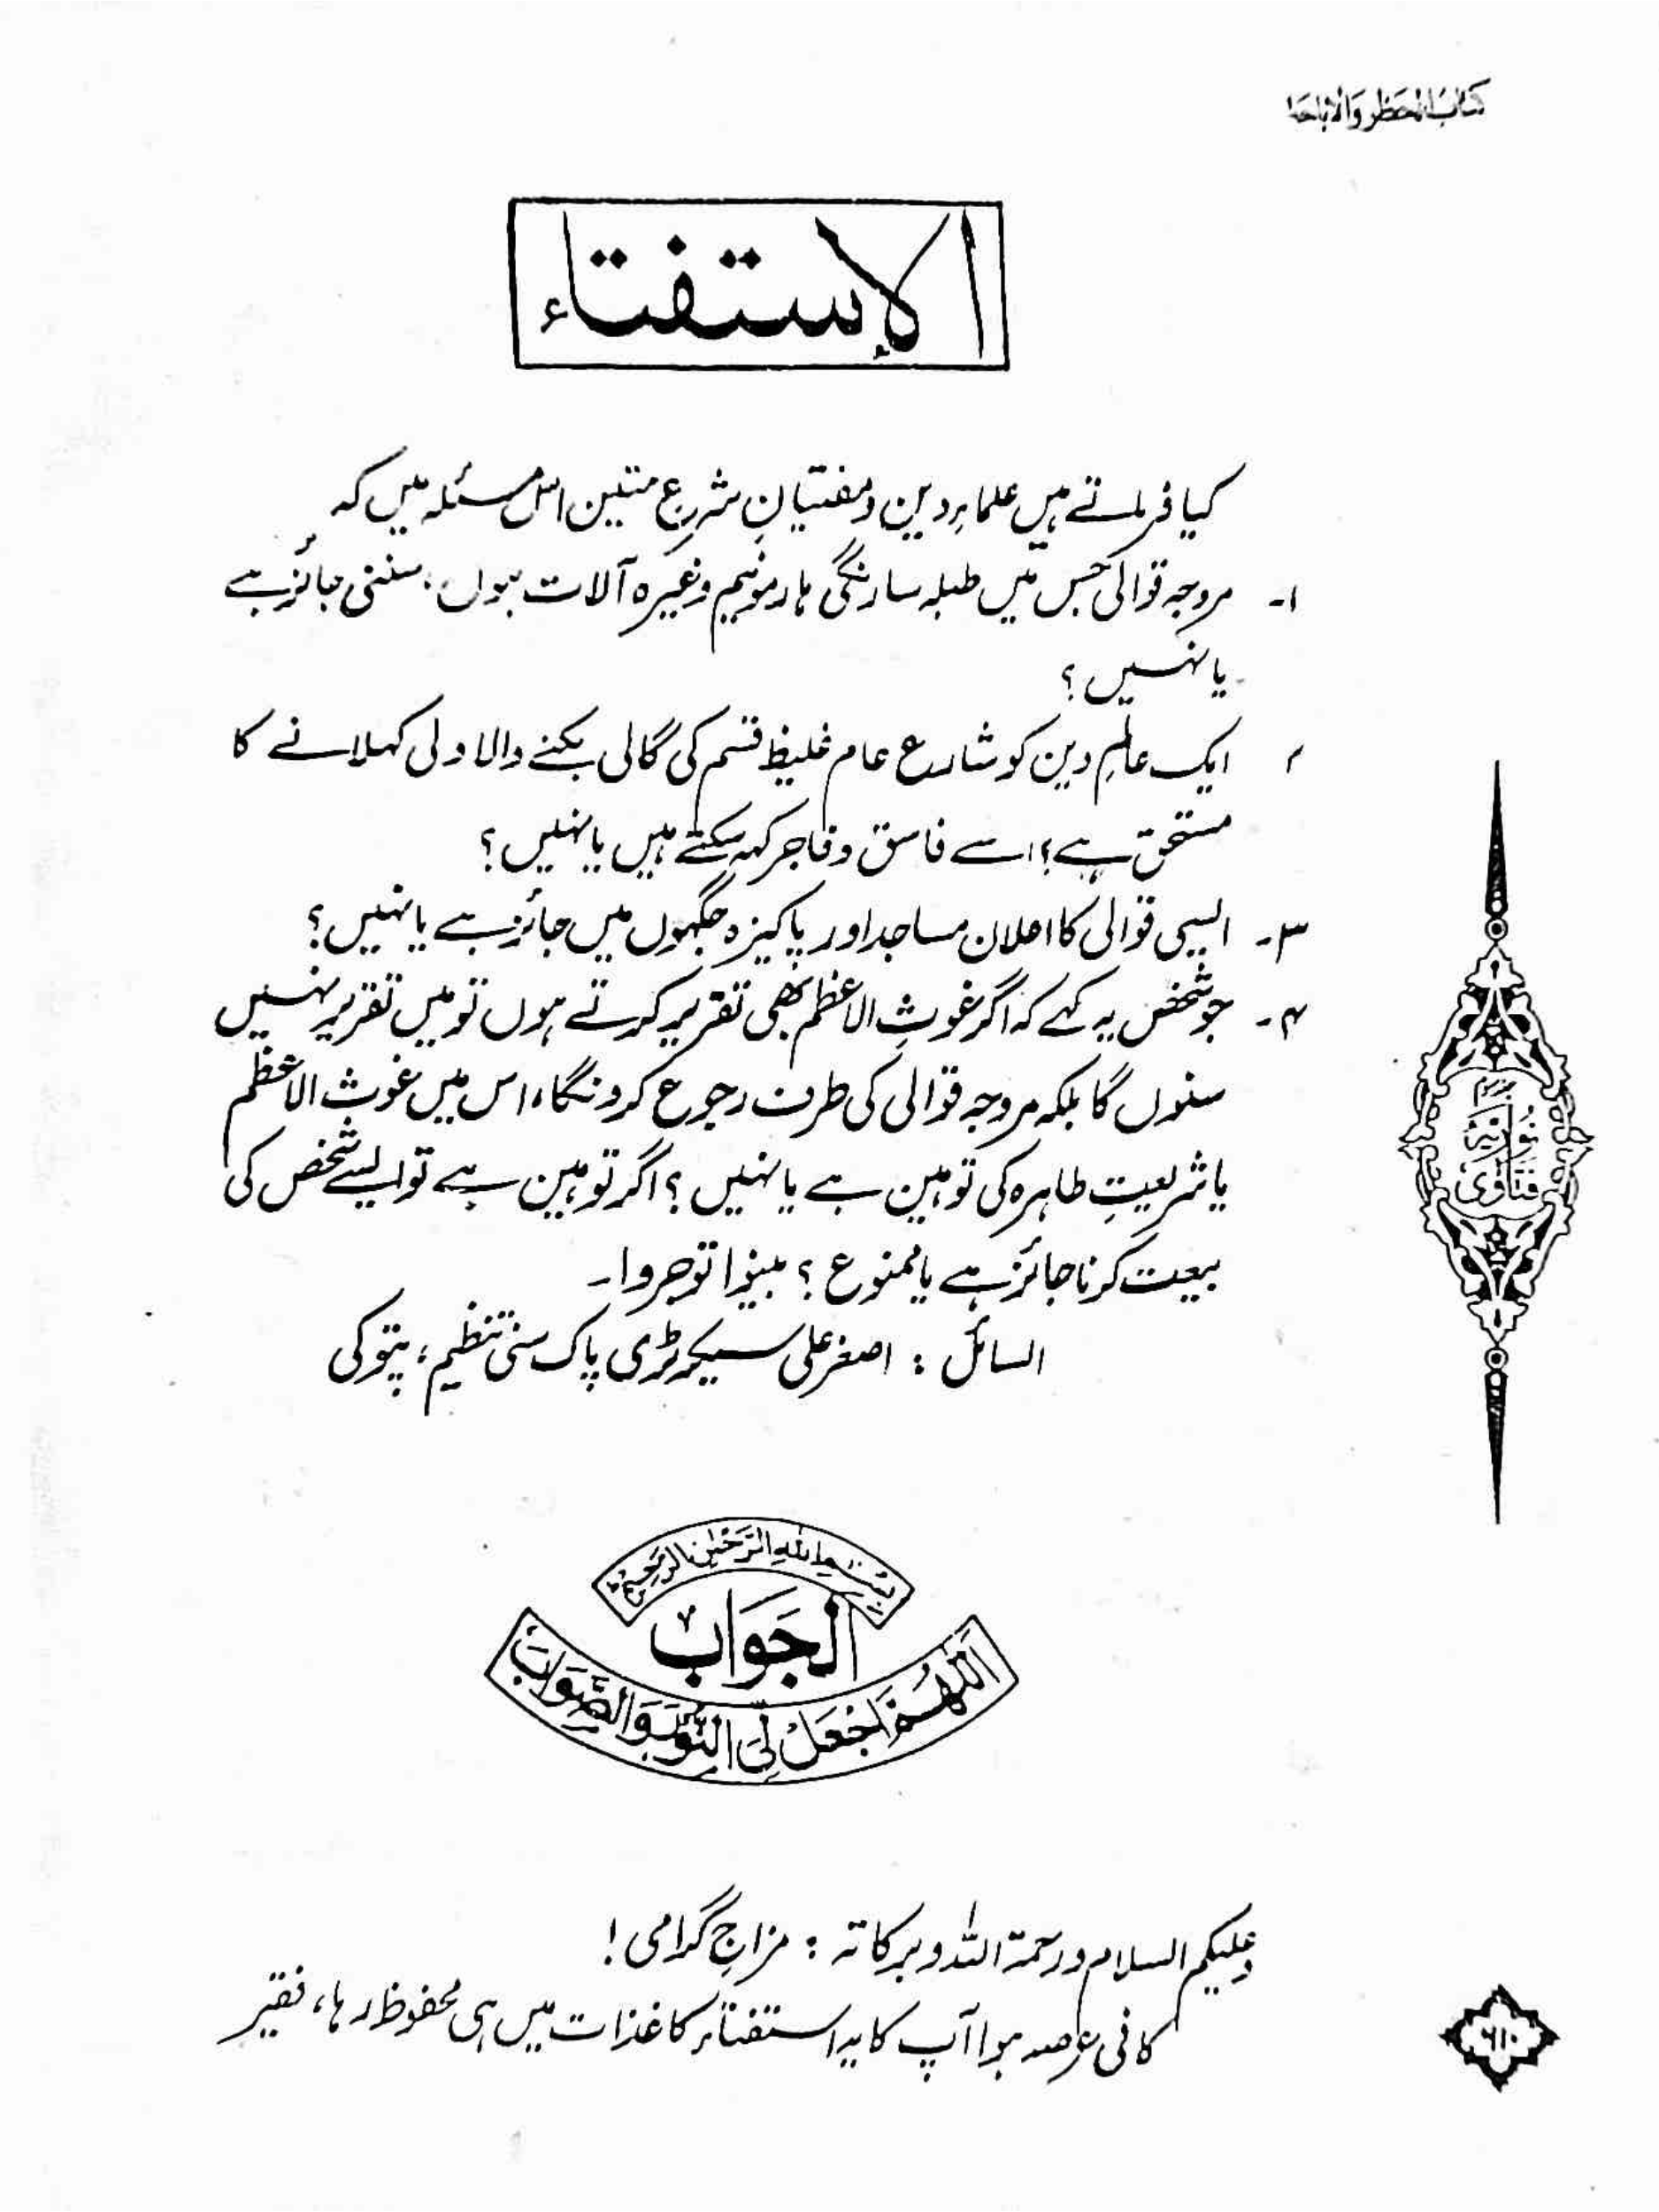 کتاب الحظر والاباحۃ
الإستفتاء
کیا فرماتے ہیں علماءِ دین و مفتیانِ شرع متین اس مسئلہ میں کہ
۱- مروجہ قوالی جس میں طبلہ سارنگی ہارمونیم وغیرہ آلات ہوں، سننی جائز ہے
یا نہیں؟
۲ ایک عالمِ دین کو شارع عام غلیظ قسم کی گالی بکنے والا ولی کہلانے کا
مستحق ہے؟ اسے فاسق و فاجر کہہ سکتے ہیں یا نہیں؟
۳- ایسی قوالی کا اعلان مساجد اور پاکیزہ جگہوں میں جائز ہے یا نہیں؟
۴- جو شخص یہ کہے کہ اگر غوث الاعظم بھی تقریر کرتے ہوں تو میں تقریر نہیں
سنوں گا بلکہ مروجہ قوالی کی طرف رجوع کرونگا، اس میں غوث الاعظم
یا شریعتِ طاہرہ کی توہین ہے یا نہیں؟ اگر توہین ہے تو ایسے شخص کی
بیعت کرنا جائز ہے یا ممنوع؟ بینوا توجروا۔
السائل : اصغر علی سیکرٹری پاک سنی تنظیم، پتوکی
فتاوی نوریہ
بسم اللہ الرحمن الرحیم
الجواب
اللھم اجعل لی النور والصواب
وعلیکم السلام ورحمۃ اللہ وبرکاتہ : مزاجِ گرامی!
کافی عرصہ ہوا آپ کا یہ استفتاء کاغذات میں ہی محفوظ رہا، فقیر
۶۱۰